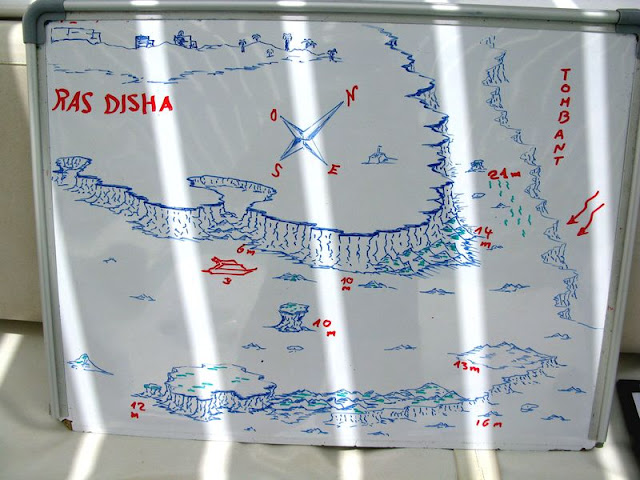 RAS DISHA
N
O
S
E
TOMBANT
21m
14
m
6m
10
m
10
m
13m
12
m
16m